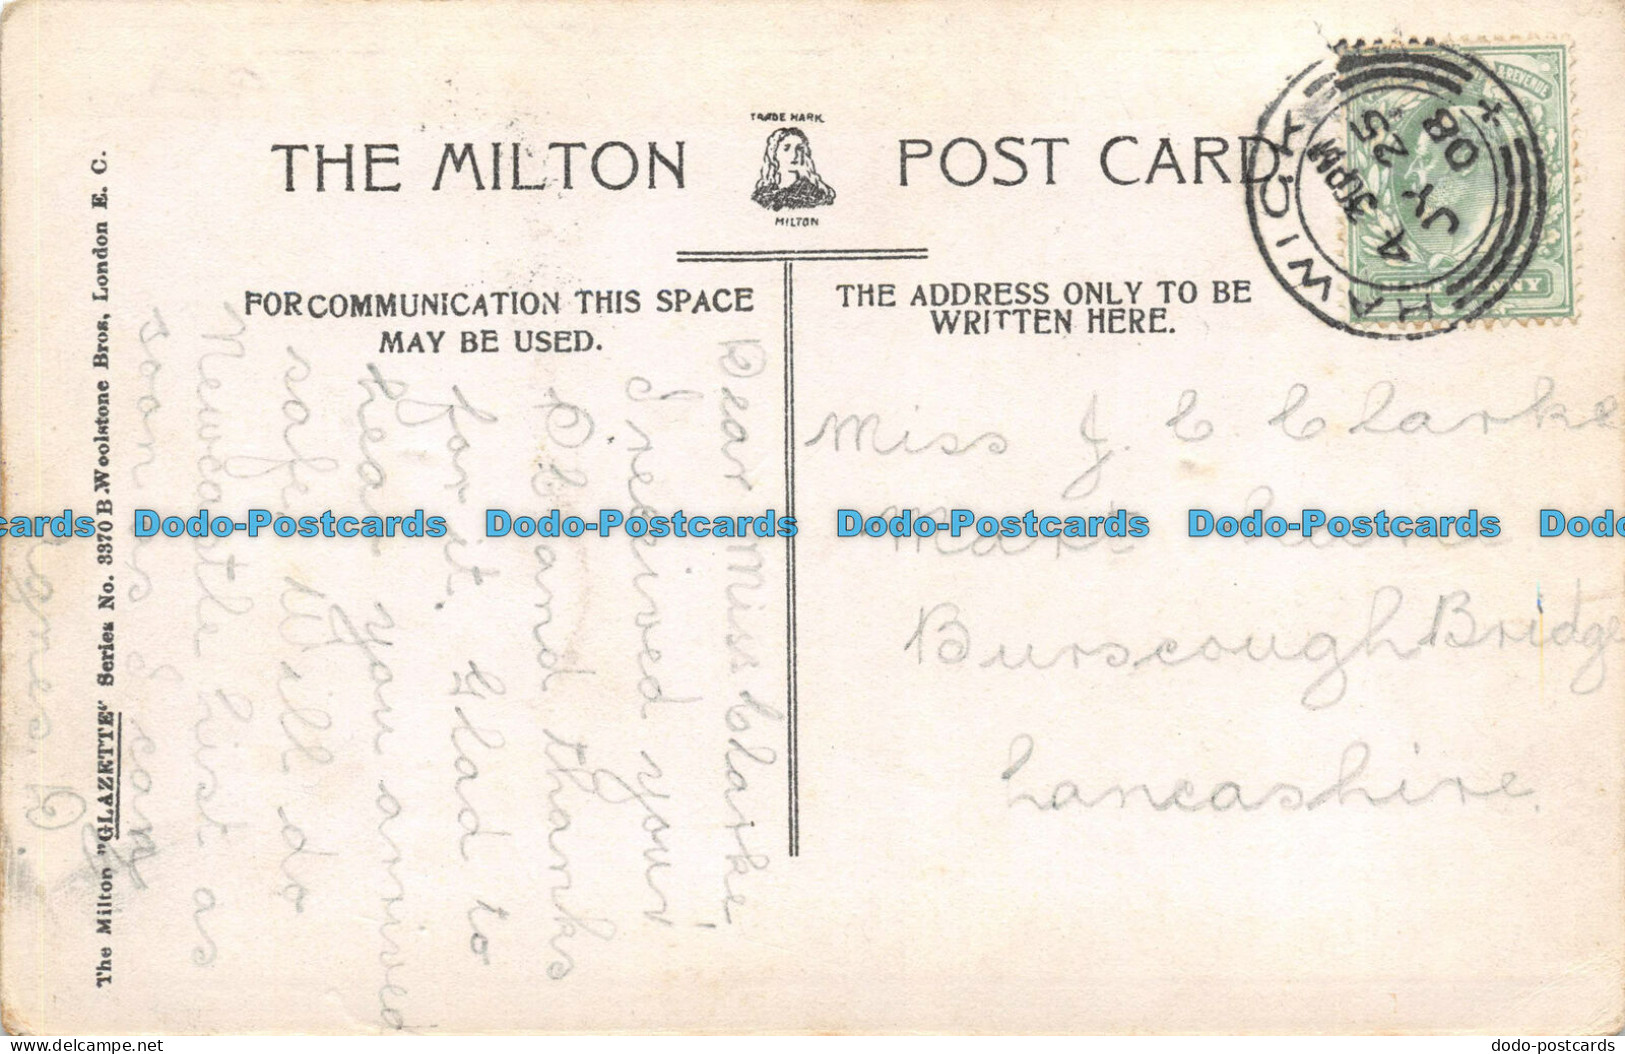 TRADE MARK
THE MILTON POST CARD
MILTON
FOR COMMUNICATION THIS SPACE
MAY BE USED.
THE ADDRESS ONLY TO BE
WRITTEN HERE.
HAWICK
4 30PM
JY 25
08
& REVENUE
Dear Miss Clarke
I received your
P.C. and thanks
for it. Glad to
hear you arrived
safe. Will do
Newcastle list as
soon as I can
Agnes. D
Miss J. C Clarke
Mart Lane
Burscough Bridge
Lancashire.
The Milton "GLAZETTE" Series No. 3370 B Woolstone Bros, London E. C.
cards Dodo-Postcards Dodo-Postcards Dodo-Postcards Dodo-Postcards Dodo
delcampe.net
dodo-postcards